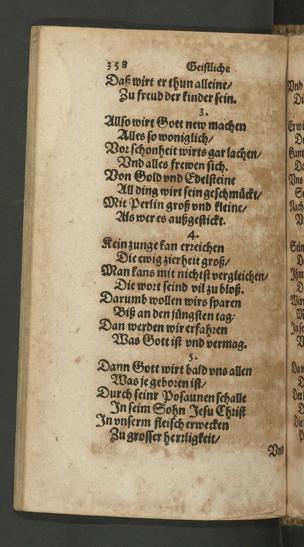 358 Geistliche
Daß wirt er thun alleine/
Zu freud der kinder sein.
3.
Allso wirt Gott new machen
Alles so woniglich/
Vor schonheit wirts gar lachen/
Vnd alles frewen sich.
Von Gold vnd Edelsteine
All ding wirt sein geschmückt/
Mit Perlin groß vnd kleine/
Als wer es außgestickt.
4.
Kein zunge kan erreichen
Die ewig zierheit groß/
Man kans mit nichtst vergleichen/
Die wort seind vil zu bloß.
Darumb wollen wirs sparen
Biß an den jüngsten tag:
Dan werden wir erfahren
Was Gott ist vnd vermag.
5.
Dann Gott wirt bald vns allen
Was je geboren ist/
Durch seinr Posaunen schalle
In seim Sohn Jesu Christ
In vnserm fleisch erwecken
Zu grosser herrligkeit/
Vnd